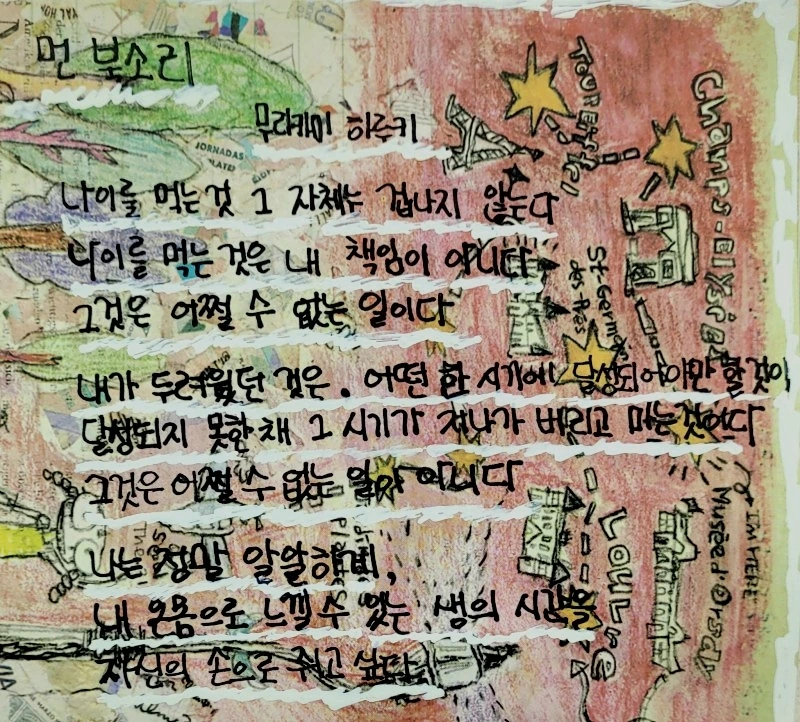 먼 북소리
무라카미 하루키
나이를 먹는것 그 자체는 겁나지 않는다
나이를 먹는 것은 내 책임이 아니다
그것은 어쩔 수 없는 일이다
내가 두려웠던 것은. 어떤 한 시기에 달성되어야만 할것이
달성되지 못한채 그 시기가 지나가 버리고 마는것이다
그것은 어쩔 수 없는 일이 아니다
나는 정말 알알하게,
내 온몸으로 느낄 수 있는 생의 시간을
자신의 손으로 쥐고 싶다.
Tour Eiffel
Champs-Elysées
St-Germain
des Prés
Louvre
Musée d'Orsay
I'm HERE
JORNADAS